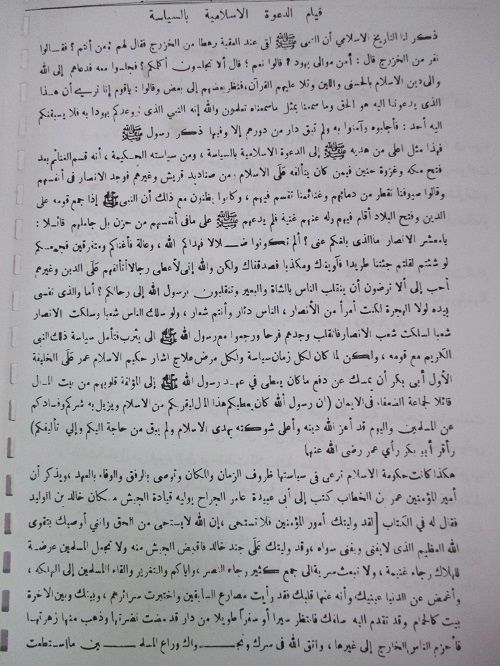 قيام الدعوة الاسلامية بالسياسة
ذكر لنا التاريخ الاسلامي أن النبي ﷺ اتى عند العقبة رهطا من الخزرج فقال لهم من أنتم ؟ فقــالوا
نفر من الخزرج قال : أمن موالى يهود ؟ قالوا نعم ؛ قال ألا تجلسون أكلمكم ؟ فجلسوا معه فدعاهم إلى الله
والى دين الاسلام بالحسنى واللين وتلا عليهم القرآن، فنظر بعضهم إلى بعض وقالوا : ياقوم إنا نرى أن هــذا
الذى يدعونا اليه هو الحق وما سمعنا بمثل ماسمعناه تعلمون والله إنه النبى الذى توعدكم يهودا به فلا يسبقنكم
اليه أحد : فأجابوه وآمنوا به ولم تبق دار من دورهم إلا وفيها ذكر رسول ﷺ
فهذا مثل اعلى من هديه ﷺ إلى الدعوة الاسلامية بالسياسة ، ومن سياسته الحكيمة ، أنه قسم الغنائم بعد
فتح مكة وغزوة حنين فيمن كان يتألفه على الاسلام من صناديد قريش وغيرهم فوجد الانصار فى أنفسهم
وقالوا سيوفنا تقطر من دمائهم وغنائمنا تقسم فيهم ، وكانوا يظنون مع ذلك أن النبي ﷺ إذا جمع قومه على
الدين وفتح البلاد أقام فيهم وله عنهم غنية فلم يدعهم ﷺ على مافى أنفسهم من حزن بل جاملهم قائـلا :
يامعشر الانصار ماالذى بلغكم عنى ؟ ألم تكونوا ضـلالا فهداكم الله ، وعالة فأغناكم ومتفرقين فجمعكم
لو شئتم لقلتم جئتنا طريدا فآويناك ومكذبا فصدقناك ولكن والله إنى لأعطى رجالا أتألفهم على الدين وغيرهم
أحب إلى ألا ترضون أن ينقلب الناس بالشاة والبعير وتنقلبون برسول الله إلى رحالكم ؟ أما والذى نفسى
بيده لولا الهجرة لكنت أمرأ من الأنصار ، الناس دثار وأنتم شعار ، ولو سلك الناس شعبا وسلكت الانصار
شعبا لسلكت شعب الانصار فانقلب وجدهم فرحا ورجعوا مع رسول الله ﷺ الى يثرب فتأمل سياسة ذلك النبى
الكريم مع قومه ، ولكن لما كان لكل زمان سياسة ولكل مرض علاج اشار حكيم الاسلام عمر على الخليفة
الأول أبى بكر أن يمسك عن دفع ماكان يعطى فى عهد رسول الله ﷺ إلى المؤلفة قلوبهم من بيت المـال
قائلا لجماعة الضعفاء فى الايمان (ان رسول الله كان يعطيكم هذا المال ليقربكم من الاسلام ويزيل به شركم وفسادكم
عن المسلمين واليوم قد أعز الله دينه وأعلى شوكته بهدى الاسلام ولم يبق من حاجة اليكم وإلى تأليفكم)
وأقر أبو بكر رأى عمر رضى الله عنها
هكذا كانت حكومة الاسلام ترعى فى سياستها ظروف الزمان والمكان وتوصى بالرفق والوفاء بالعهد، ويذكر أن
أمير المؤمنين عمر بن الخطاب كتب إلى أبى عبيدة عامر الجراح يوليه قيادة الجيش مكان خالد بن الوليد
فقال له فى الكتاب [لقد وليتك أمور المؤمنين فلا تستحى ،فإن الله لايستحى من الحق وانى أوصيك بتقوى
الله العظيم الذى لايفنى ويفنى سواه ،وقد وليتك على جند خالد فاقبض الجيش منه ولا تجعل المسلمين عرضة
للهلاك رجاء غنيمة ، ولا تبعث سرية الى جمع كثير رجاء النصر ،واياكم والتغرير والقاء المسلمين إلى الهلكة ،
وأغمض عن الدنيا عينيك وأنه عنها قلبك فقد رأيت مصارع السابقين واختبرت سرائرهم ، وبينك وبين الآخرة
بيت كالخام وقد تقدم اليه سلفك فانتظر سيرا أو سفرا طويلا من دار قد مضت نضرتها وذهب منها زهرتها
فأحزم الناس الخارج إلى غيرها ، واتق الله فى سرك ونجـــواك وراع المسلمـــــين ما استطعت